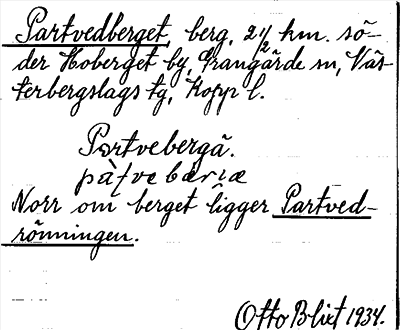 Partvedberget, berg, 2½ km. sö-
der Hoberget by, Grangärde sn, Väs-
terbergslags tg, Kopp l.
Partvebergä.
Norr om berget ligger Partved-
rönningen.
Otto Blixt 1934.